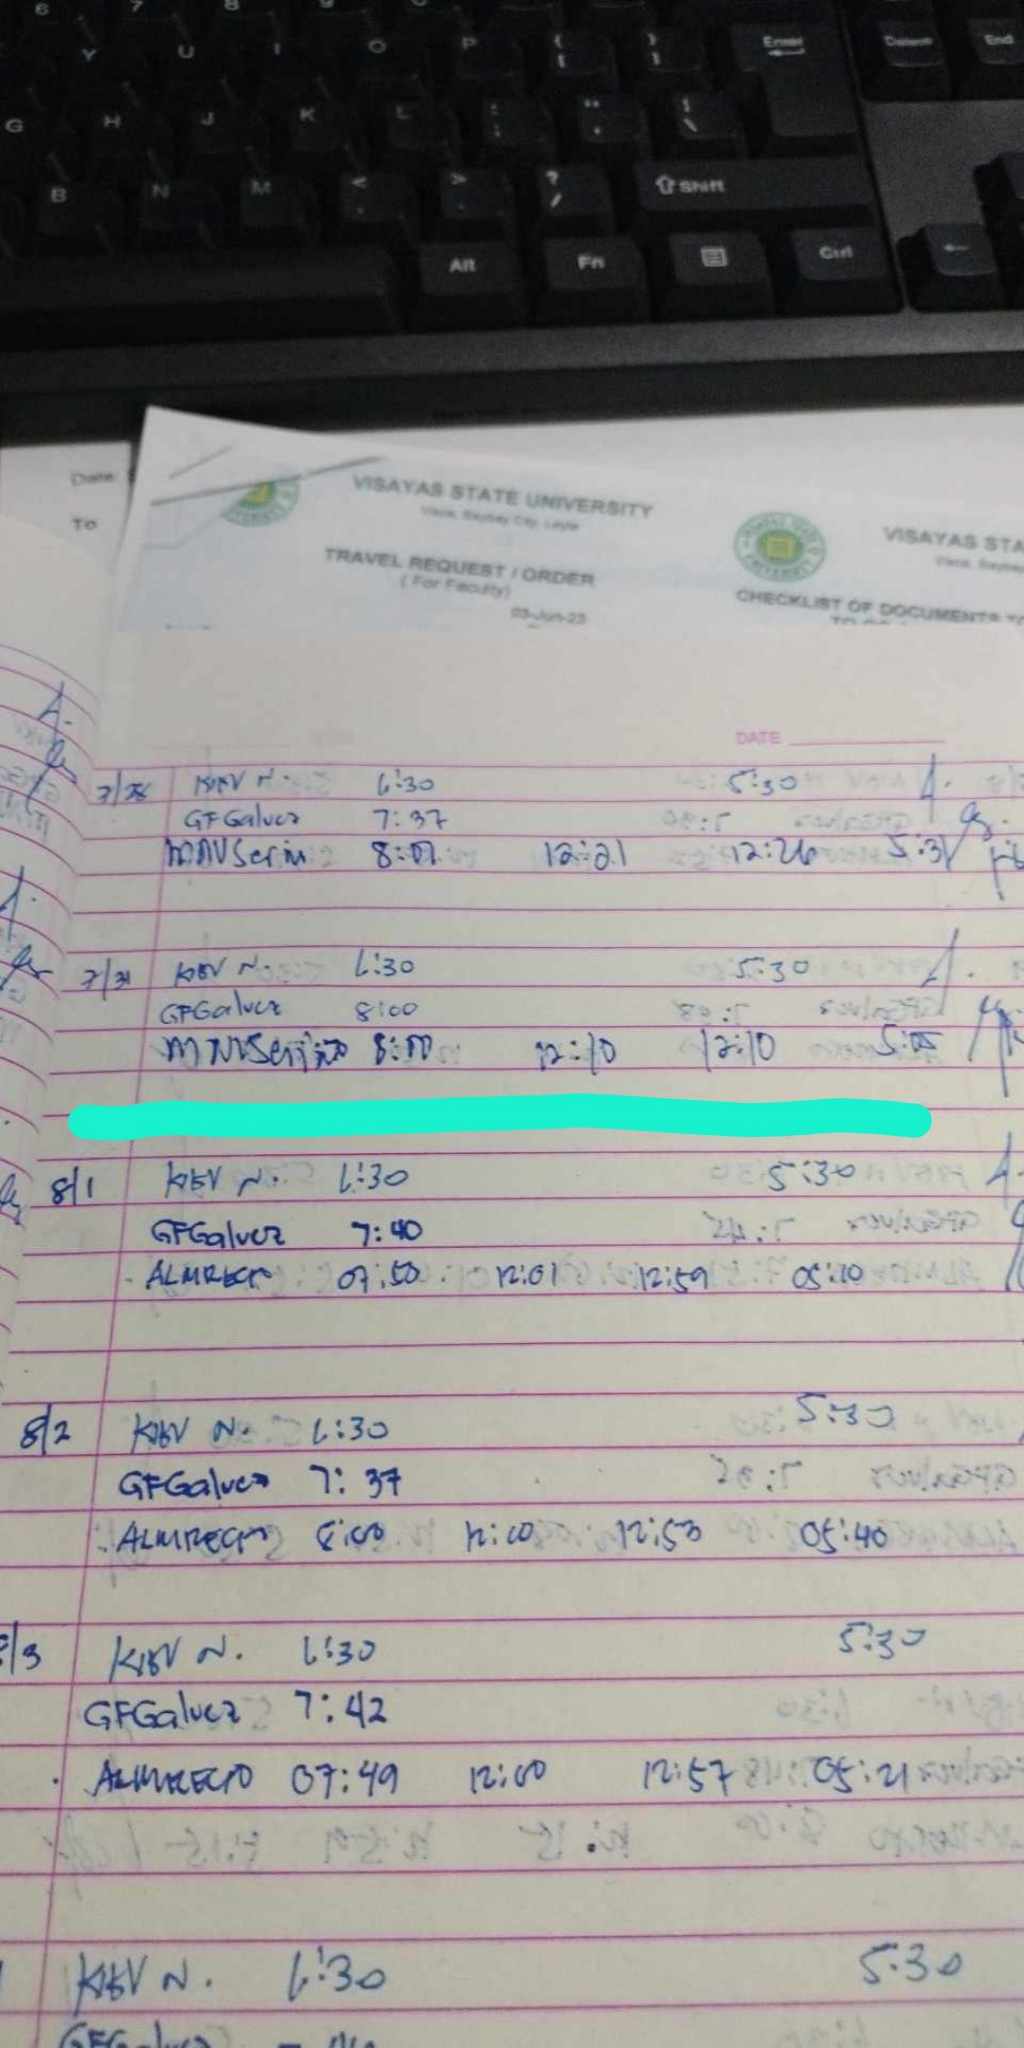 6 7 8 9
Y U I O P { [ } ] Enter Delete End
G H J K L : ; " ' | \
B N M < , > . ? / Shift
Alt Fn Ctrl
Date:
To
VISAYAS STATE UNIVERSITY
Visca, Baybay City, Leyte
TRAVEL REQUEST / ORDER
( For Faculty)
03-Jun-23
VISAYAS STA
CHECKLIST OF DOCUMENTS TO
DATE
7/28 KBV N. 6:30 5:30
GFGalvez 7:37
MNVSerino 8:01 12:21 12:26 5:31
7/31 KBV N. 6:30 5:30
GFGalvez 8:00
MNVSerino 8:00 12:10 12:10 5:05
8/1 KBV N. 6:30 5:30
GFGalvez 7:40
ALMRECTO 07:50 12:01 12:59 05:10
8/2 KBV N. 6:30 5:30
GFGalvez 7:37
ALMRECTO 8:00 12:00 12:53 05:40
8/3 KBV N. 6:30 5:30
GFGalvez 7:42
ALMRECTO 07:49 12:00 12:57 05:21
KBV N. 6:30 5:30
GFGalvez